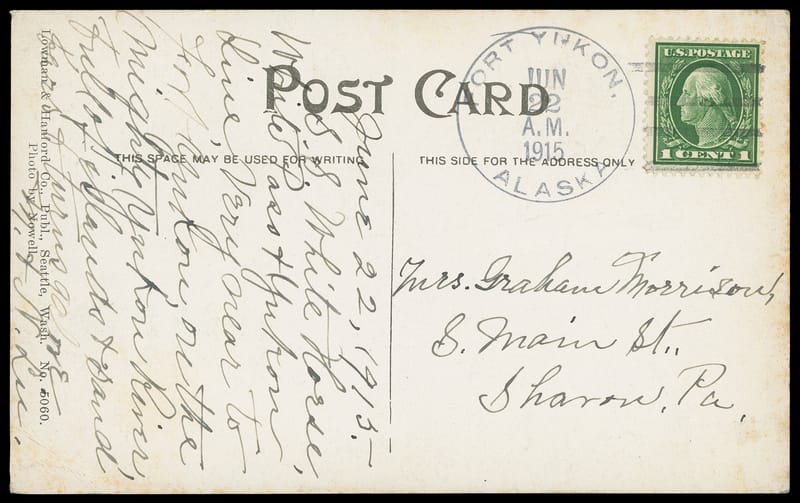 POST CARD
THIS SPACE MAY BE USED FOR WRITING
THIS SIDE FOR THE ADDRESS ONLY
FORT YUKON,
JUN
22
A.M.
1915
ALASKA
U.S. POSTAGE
1 CENT 1
June 22, 1915.—
S.S. White Horse,
White Pass & Yukon
Line, Very near to
Fort Yukon, on the
Mighty Yukon River
Full of islands & sand
Mrs. Graham Morrison,
S. Main St.,
Sharon, Pa.,
Lowman & Hanford Co., Publ., Seattle, Wash. No. 5060.
Photo by Nowell